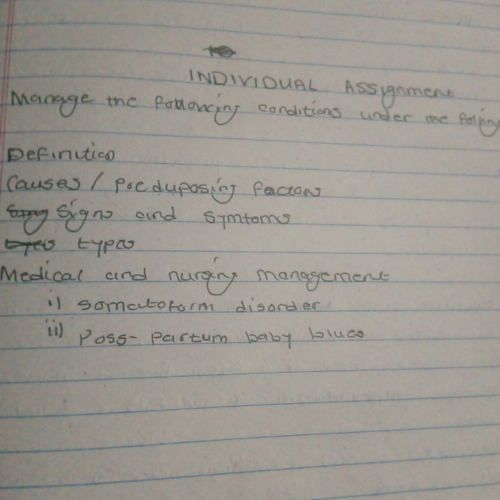 INDIVIDUAL Assignment
Manage the following conditions under the
Definition
Causes / Predisposing factors
Signs and Symtoms
types
Medical and nursing management
i) Somatoform disorder
ii) Poss-partum baby blues